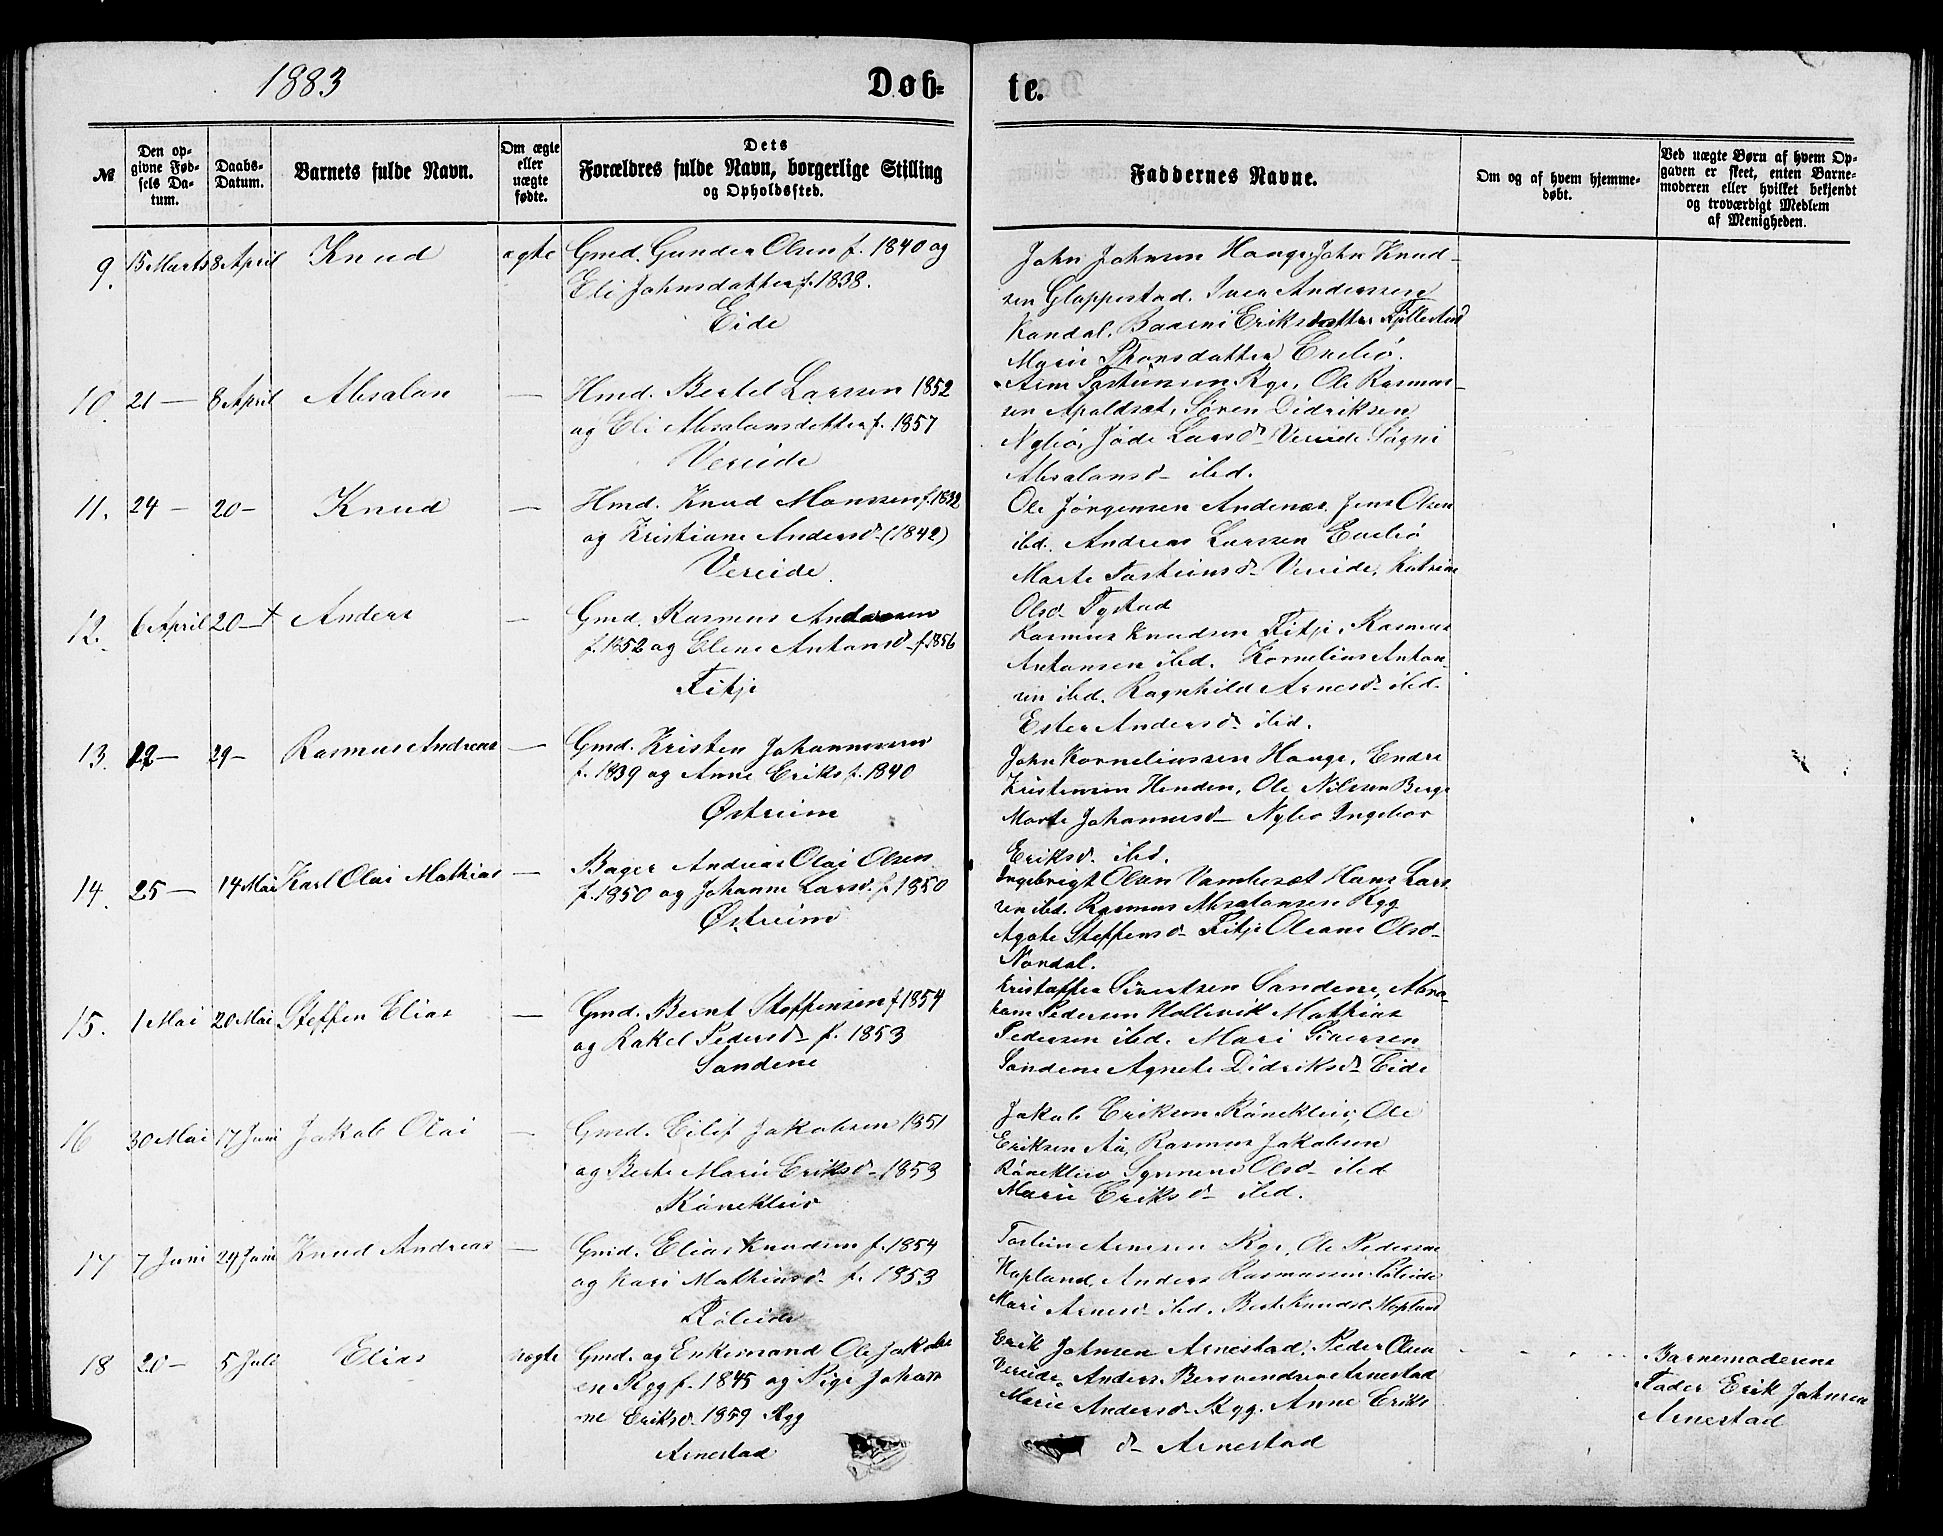 1883
Døb- te.
№
Den opgivne Fødsels Datum.
Daabs-Datum.
Barnets fulde Navn.
Om ægte eller uægte fødte.
Dets Forældres fulde Navn, borgerlige Stilling og Opholdssted.
Faddernes Navne.
Om og af hvem hjemmedøbt.
Ved uægte Børn af hvem Opgaven er skeet, enten Barnemoderen eller hvilket bekjendt og troværdigt Medlem af Menigheden.
9. 15 Marts 8 April Knud ægte Gmd. Gunder Olsen f. 1840 og
Eli Johnsdatter f. 1838.
Eide
John Johnsen Hauge, John Knud-
sen Gloppestad. Iver Anderssen
Kandal, Eriksdatter
Marie Enebø.
10. 21 — 8 April Absalon — Hmd. Bertel Larssen 1852
og Eli Absalonsdatter f. 1857
Vereide
Arne Ryg, Ole Rasmus-
sen Apaldset, Søren Didriksen
Nybø, Larsd. Vereide Søgni
Absalonsd. ibd.
11. 24 — 20 — Knud — Hmd. Knud Monssen f. 1832
og Kristiane Andersd. (1842)
Vereide.
Ole Jørgensen Andenæs, Jens Olsen
ibd. Andreas Larssen Enebø
Marte Tosteinsd. Vereide, Katrine
Olsd. Tystad
12. 6 April 20 — + Anders — Gmd. Rasmus Anderssen
f. 1852 og Elene Antonsd. f. 1856
Fitje
Rasmus Knudsen Fitje, Rasmus
Antonsen ibd. Kornelius Anton-
sen ibd. Ragnhild Arnesd. ibd.
Ester Andersd. ibd.
13. 12 — 29 — Rasmus Andreas — Gmd. Kristen Johannessen
f. 1839 og Anne Eriks f. 1840
Østreim
John Korneliussen Hauge, Endre
Kristensen Henden, Ole Nilssen Berge
Marte Johannesd. Nybø Ingebor
Eriksd. ibd.
14. 25 — 14 Mai Karl Olai Mathias — Bager Andreas Olai Olsen
f. 1850 og Johanne Larsd. f. 1850
Østreim
Ingebrigt Olsen Vambeset Hans Lars
sen ibd. Rasmus Absalonsen Ryg
Agate Steffensd. Fitje Oleane Olsd.
Nordal.
15. 1 Mai 20 Mai Steffen Elias — Gmd. Bernt Steffensen f 1854
og Rakel Pedersd. f. 1853
Sandene
Kristoffer Sivertsen Sandene, Abra-
ham Pedersen Hollevik Mathias
Pedersen ibd. Mari
Sandene Agnete Didriksd. Eide
16 30 Mai 17 Juni Jakob Olai — Gmd. Eilif Jakobsen 1851
og Berte Marie Eriksd. 1853
Rønekleiv
Jakob Eriksen Rønekleiv, Ole
Eriksen Aa, Rasmus Jakobsen
Rønekleiv Olsd. ibd
Marie Eriksd. ibd.
17 7 Juni 24 Juni Knud Andreas — Gmd. Elias Knudsen f. 1854
og Kari Mathiasd. f. 1853
Røleide
Tostein Arnesen Rygg, Ole Pedersen
Hopland, Anders Rasmussen Røleide
Mari Arnesd. ibd. Knudsd. Hopland
18 20 — 5 Juli Elias uægte Gmd. og Enkemand Ole Jakobs
en Rygg f. 1845 og Pige Johan
ne Eriksd. 1859 Rygg
Arnestad
Erik Johnsen Arnestad, Peder Olsen
Vereide, Anders Bersvendsen Arnestad
Marie Andersd. Rygg. Anne Eriks
d. Arnestad
Barnemoderens
Fader Erik Johnsen
Arnestad